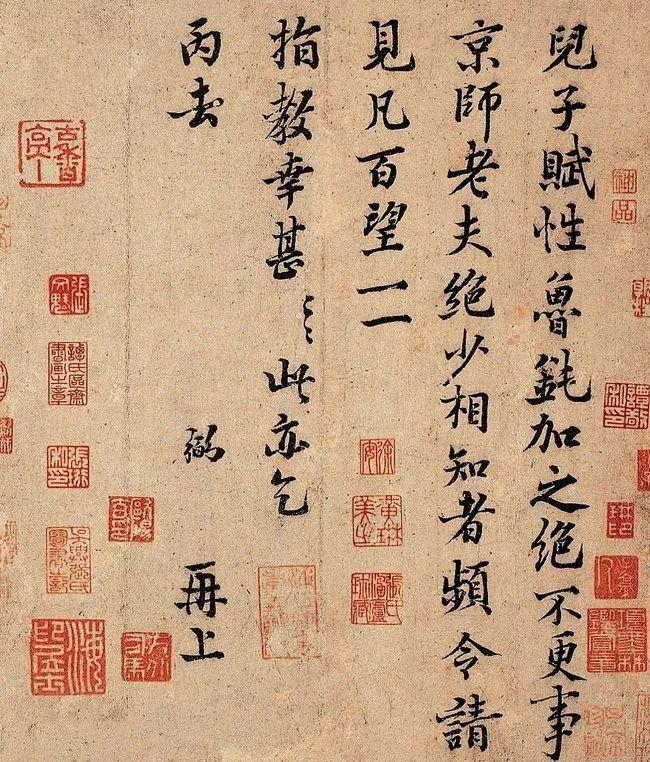 兒子賦性魯鈍加之絶不更事
京師老夫絶少相知者頻令請
見凡百望一一
指教幸甚〻〻此亦乞
丙去 弼 再上
神品